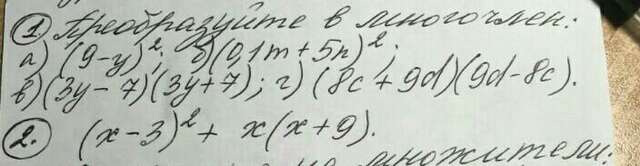 ① Преобразуйте в многочлен:
а) (9-у)²; б)(0,1m + 5n)²;
в)(3у - 7)(3у + 7); г) (8с + 9d)(9d - 8c).
2. (x - 3)² + x(x + 9).
на множители: